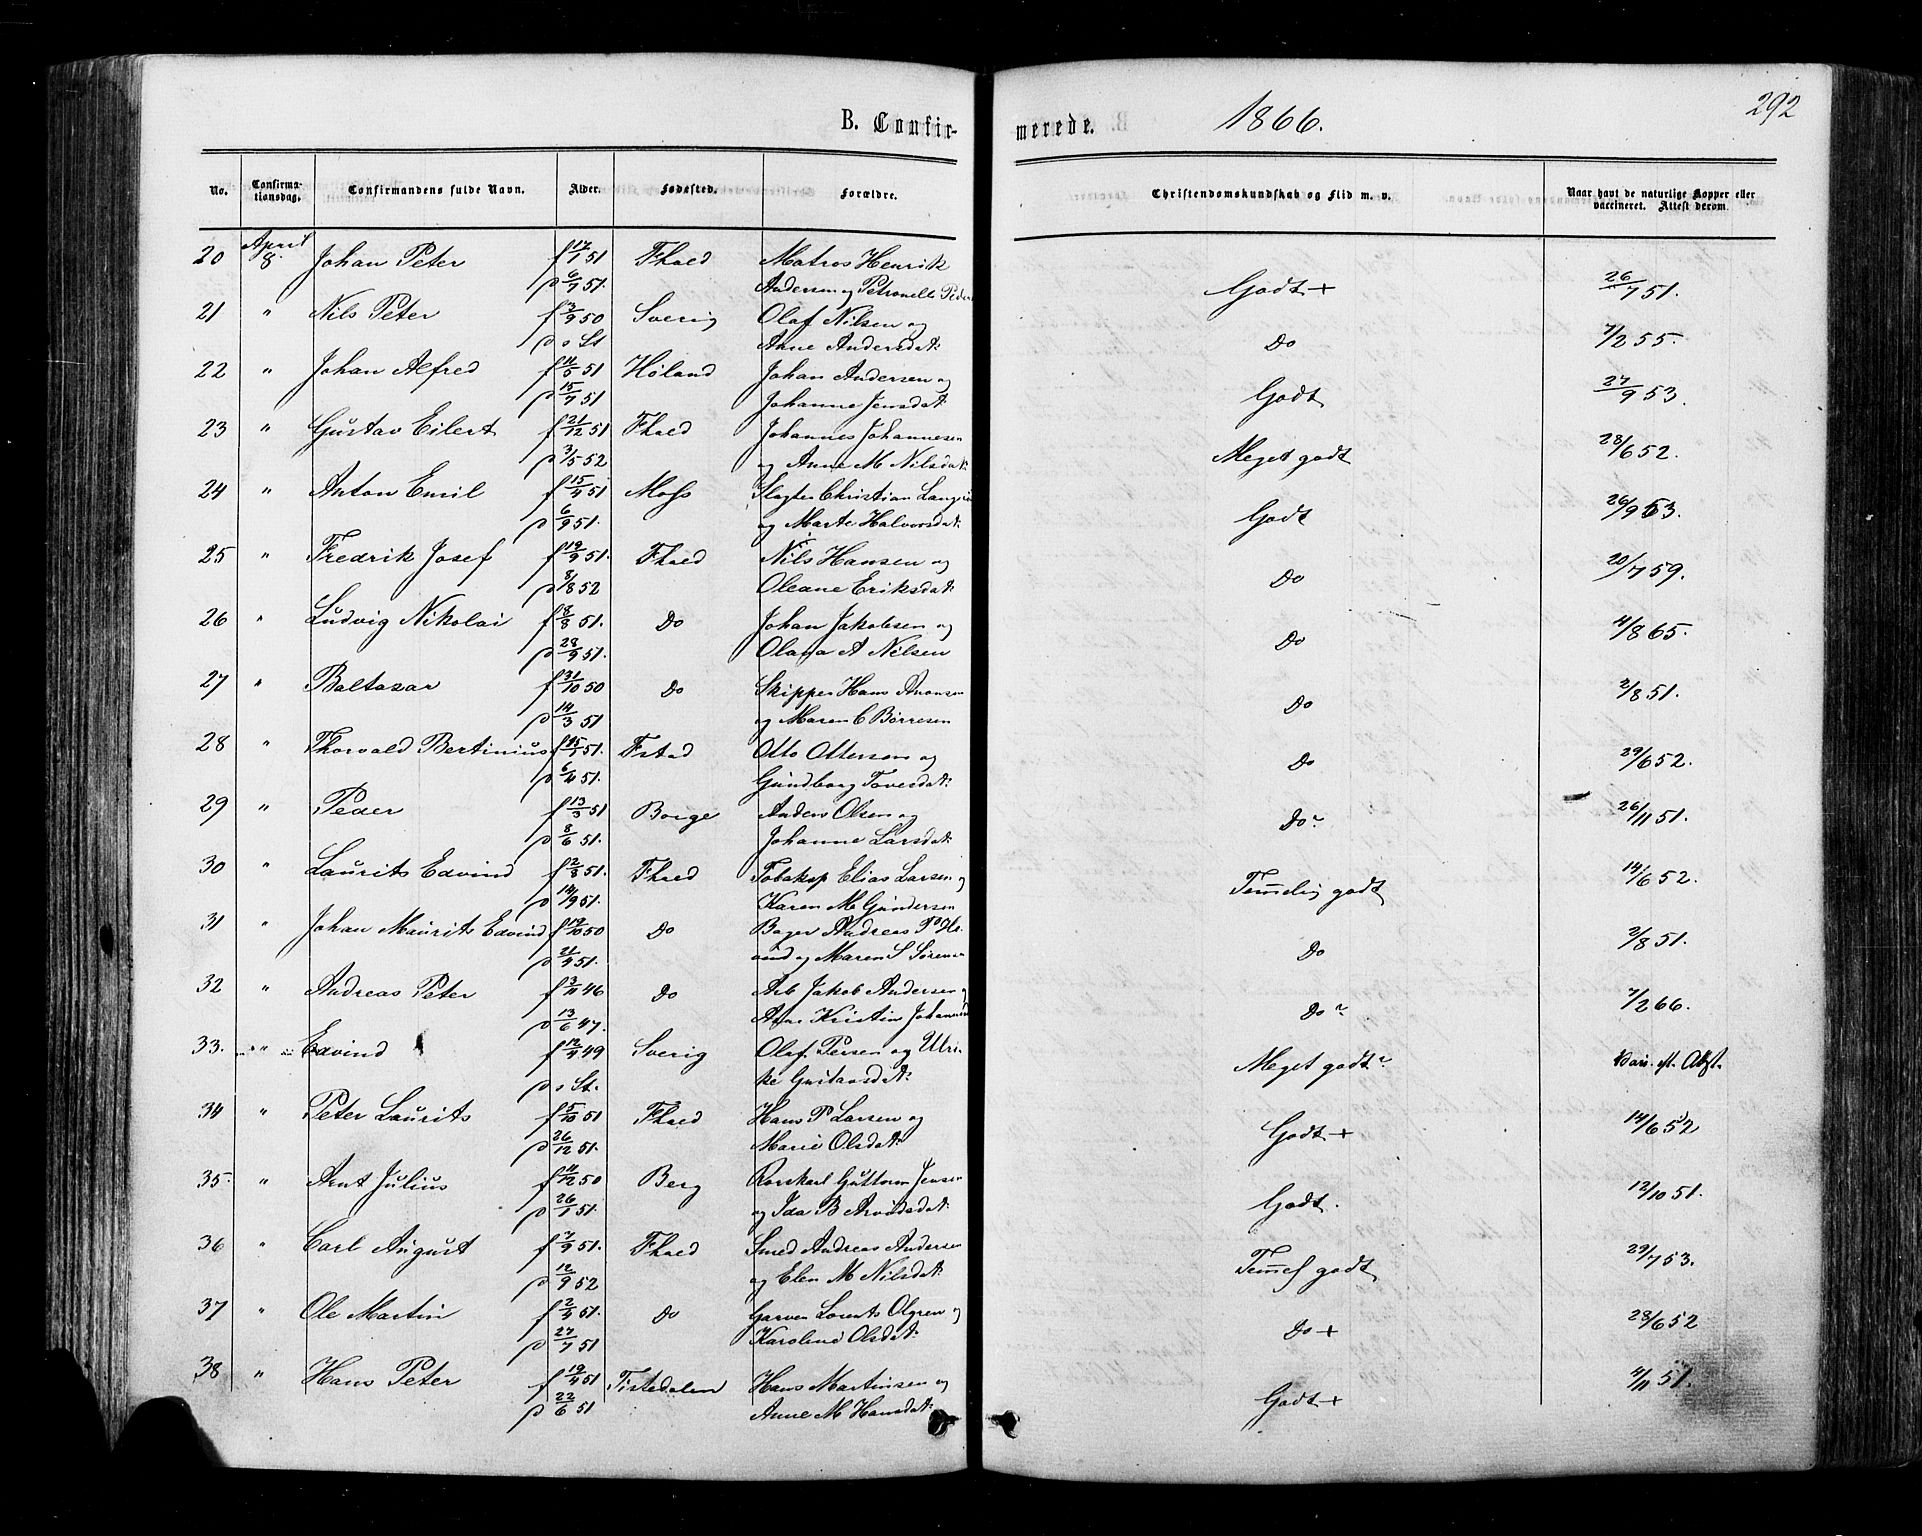 292
B. Confirmerede. 1866.
No. Confirmationsdag. Confirmandens fulde Navn. Alder. Fødested. Forældre. Christendomskundskab og Flid m. v. Naar havt de naturlige Kopper eller vaccineret. Attest derom.
20 April 8. Johan Peter f 17/1 51 Fhald Matros Henrik Godt + 26/7 51.
Andersen og Petronelle
21 " Nils Peter f 3/9 50 Sverig Olaf Nilsen og Do 7/2 55.
Anne Andersdat:
22 " Johan Alfred f 11/5 51 Høland Johan Andersen og Godt 27/9 53.
d 15/7 51 Johanne Jensdat:
23 " Gustav Eilert f 21/12 51 Fhald Johannes Johannesen Meget godt 28/6 52.
d 3/5 52 og Anne M Nilsdat:
24 " Anton Emil f 15/4 51 Moss Slagter Christian Godt 26/9
d 6/9 51. og Marte Halvorsdat:
25 " Fredrik Josef f 19/9 51. Fhald Nils Hansen og Do 20/7 59.
d 8/8 52 Oleane Eriksdat:
26 " Ludvig Nikolai f 8/8 51. Do Johan Jakobsen og Do 4/8 65.
d 28/9 51. Olava A Nilsen
27 " Baltasar f 31/10 50 Do Skipper Hans Do 2/8 51.
d 14/3 51 og Maren C Børresen
28 " Thorvald Bertinius Fstad Otto Ottersen og Do 29/6 52.
Gundborg Tovesdat:
29 " Peder f 13/3 51 Borge Anders Olsen og Do 26/11 51.
d 8/6 51. Johanne Larsdat:
30 " Laurits Edvind f 2/8 51. Fhald Tobaksp Elias Larsen og Temmelig godt 14/6 52.
d 14/9 51. Karen M Gundersen
31 " Johan Maurits Edvind f 19/10 50 Do Bager Andreas Do 2/8 51.
d 21/4 51. og Maren S Sørensen
32 " Andreas Peter f 3/11 46 Do Arb Jakob Andersen og Do 7/2 66.
d 13/6 47. Kristin
33. " Edvind f 12/4 49 Sverig Olaf Persen og Ulri- Meget godt
d o St. ke Gustavsdat:
34 " Peter Laurits f 5/10 51 Fhald Hans P Larsen og Godt + 14/6 52
d 26/12 51. Marie Olsdat:
35. " Arnt Julius f 11/12 50 Berg Guttorm Jensen Godt. 12/10 51.
d 26/1 51. og Ida B Arvidsdat:
36 " Carl August f 7/9 51. Fhald Smed Andreas Andersen Temmel godt 29/7 53.
d 12/9 52 og Elen M Nilsdat:
37 " Ole Martin f 2/4 51. Do Garver Lorents Olgren og Do + 28/6 52
d 27/7 51 Karoline Olsdat:
38 " Hans Peter f 19/4 51 Tistedalen Hans Martinsen og Godt + 4/11 51.
d 22/6 51 Anne M Hansdat: